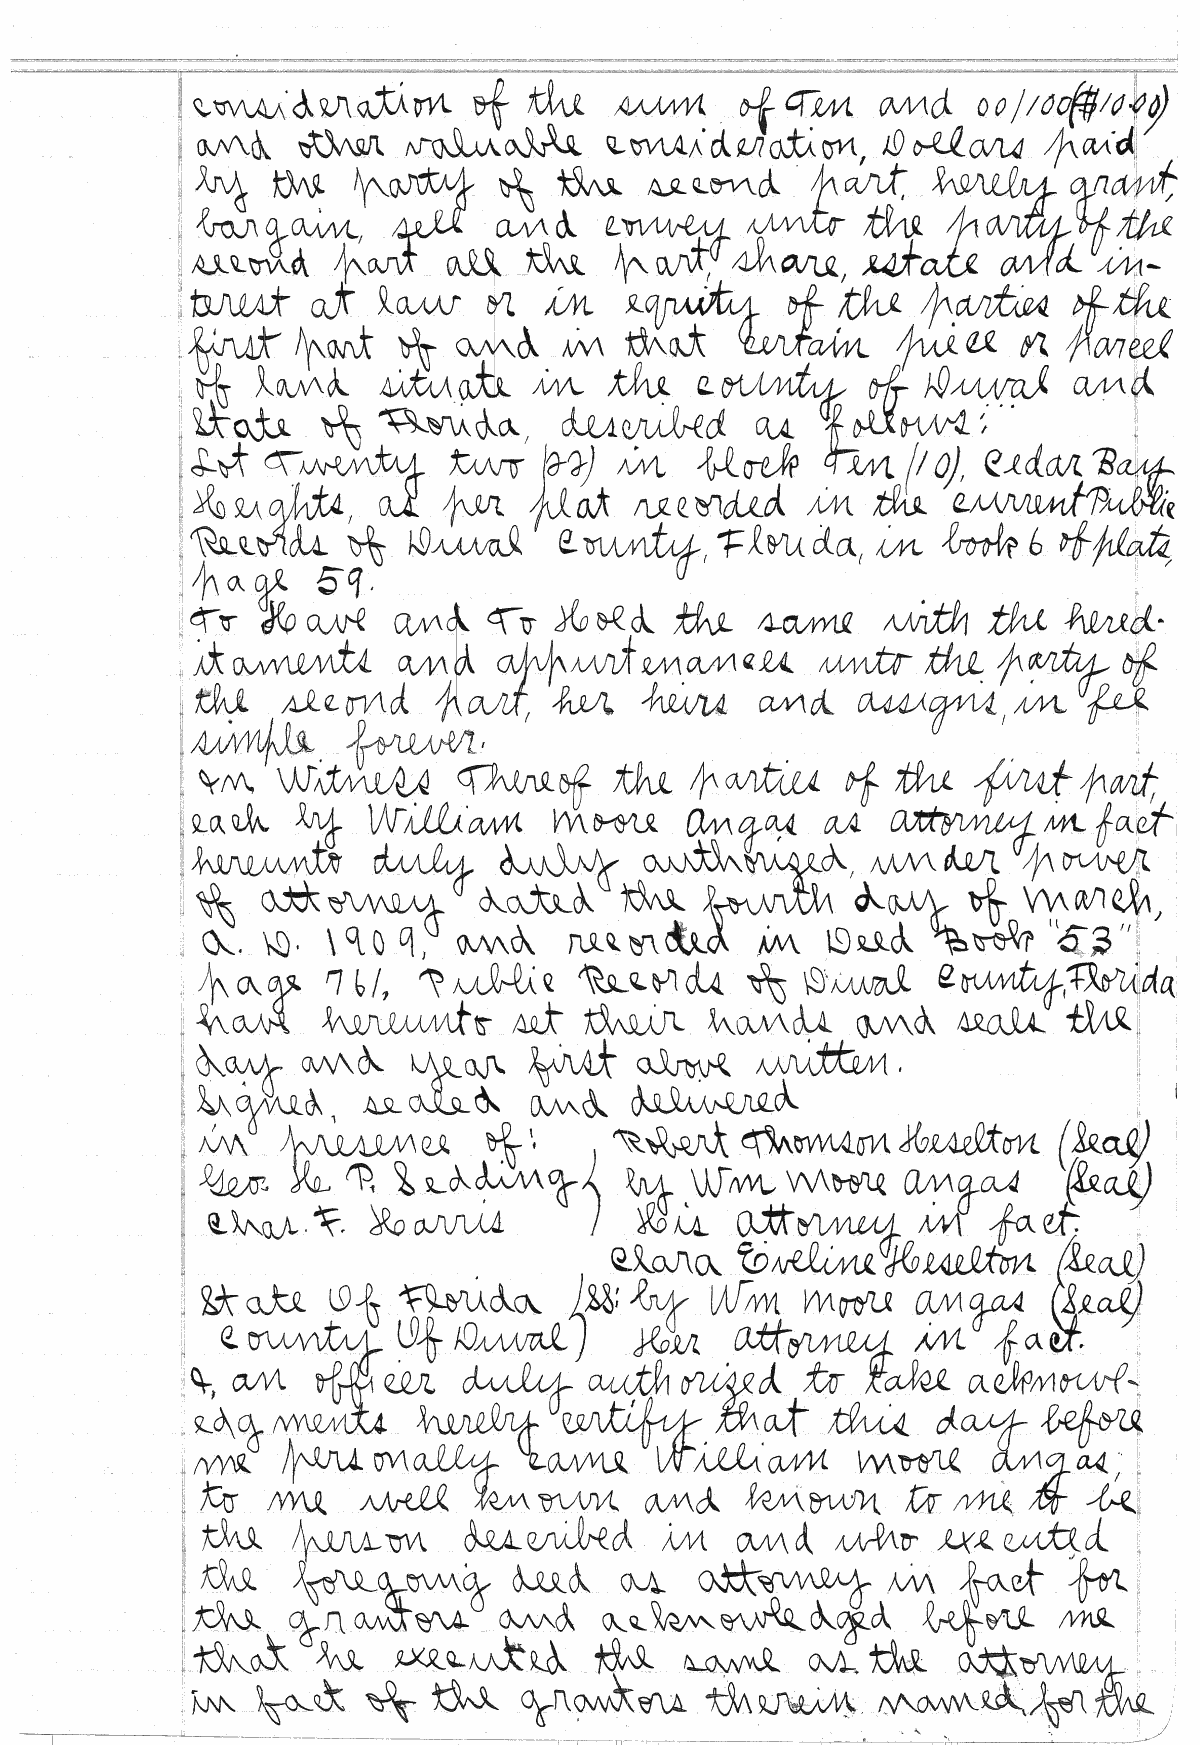 consideration of the sum of Ten and 00/100($10.00)
and other valuable consideration, Dollars paid
by the party of the second part, hereby grant,
bargain, sell and convey unto the party of the
second part all the part, share, estate and in-
terest at law or in equity of the parties of the
first part of and in that certain piece or parcel
of land situate in the county of Duval and
State of Florida, described as follows:
Lot Twenty two (22) in block Ten (10), Cedar Bay
Heights, as per plat recorded in the current Public
Records of Duval County, Florida, in book 6 of plats,
page 59.
To Have and To Hold the same with the hered-
itaments and appurtenances unto the party of
the second part, her heirs and assigns, in fee
simple forever.
In Witness Thereof the parties of the first part,
each by William Moore Angas as attorney in fact
hereunto duly duly authorized, under power
of attorney dated the fourth day of March,
A. D. 1909, and recorded in Deed Book "53"
page 761, Public Records of Duval County, Florida
have hereunto set their hands and seals the
day and year first above written.
Signed, sealed and delivered
in presence of: Robert Thomson Heselton (Seal)
Geo. H. P. Sedding by Wm Moore Angas (Seal)
Chas. F. Harris His attorney in fact.
Clara Eveline Heselton (Seal)
State Of Florida )SS: by Wm Moore Angas (Seal)
County Of Duval) Her attorney in fact.
I, an officer duly authorized to take acknowl-
edgments hereby certify that this day before
me personally came William Moore Angas,
to me well known and known to me to be
the person described in and who executed
the foregoing deed as attorney in fact for
the grantors and acknowledged before me
that he executed the same as the attorney
in fact of the grantors therein named, for the